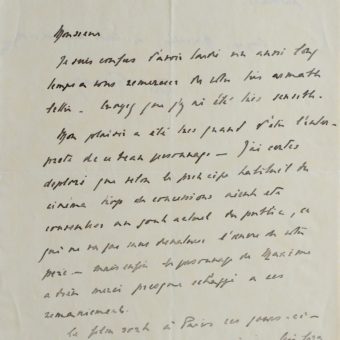 Monsieur
Je suis confus d'avoir tardé un aussi long
temps à vous remercier de votre très aimable
lettre – Croyez que j'y ai été très sensible.
Mon plaisir a été très grand d'être l'inter-
prète de ce beau personnage – J'ai certes
déploré que selon le principe habituel du
cinéma trop de concessions aient été
consenties au goût actuel du public, ce
qui ne va pas sans dénaturer l'œuvre de votre
père – mais enfin le personnage de Maxime
a Dieu merci presque échappé à ces
remaniements.
Le film sort à Paris ces jours-ci –